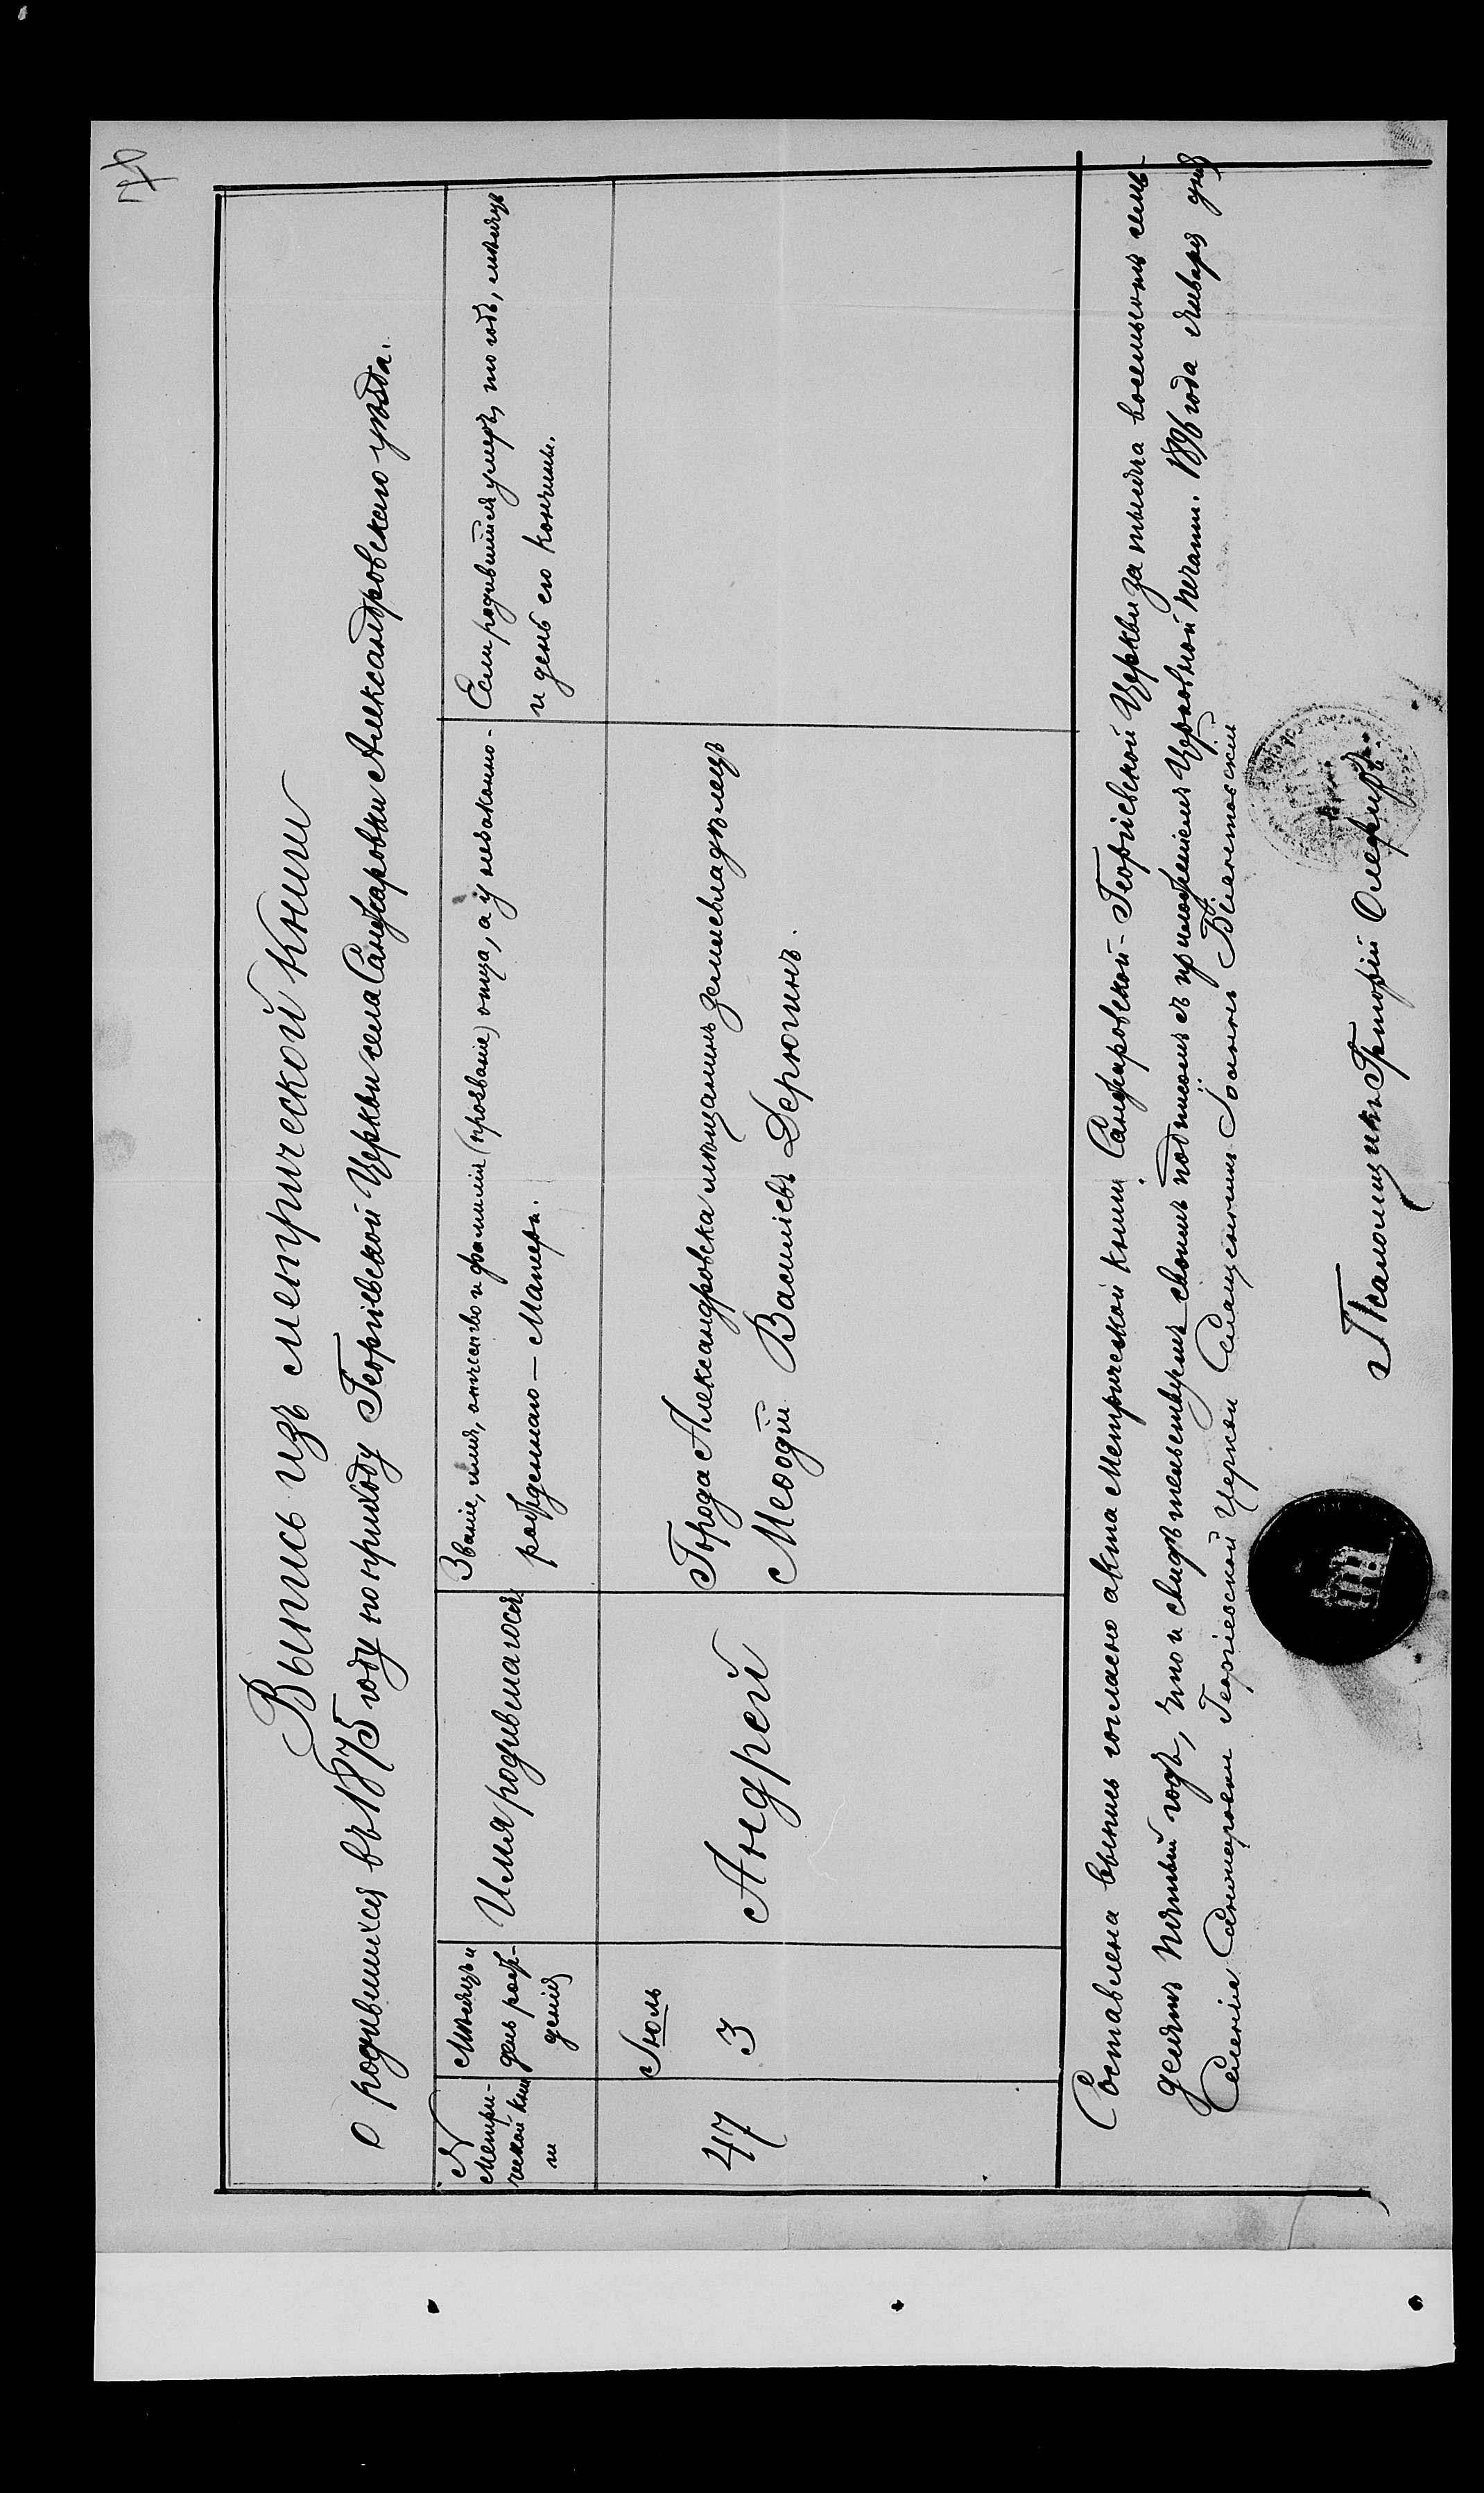 Выпись изъ метрической книги
О родившихся въ 1875 году по приходу Георгіевской Церкви села Санжаровки Александровскаго уѣзда.
№
Метри-
ческой кни
ги
Мѣсяцъ и
день рож-
денія
Имя родившагося
Званіе, имя, отчество и фамилія (прозваніе) отца, а у незаконно-
рожденнаго — Матери.
Если родившійся умеръ, то годъ, мѣсяцъ
и день его кончины.
47
Іюль
3
Андрей
Города Александровска мѣщанинъ землевладѣлецъ
Меѳодій Василіевъ Дерюгинъ.
Составлена выпись согласно акта Метрической книги Санжаровской-Георгіевской Церкви за тысяча восемьсотъ семь-
десятъ пятый годъ, что и свидѣтельствуемъ своимъ подписомъ съ приложеніемъ Церковной печати. 1896 года Января дня
Селенія Санжаровки Георгіевской Церкви Священникъ Іоаннъ
Псаломщикъ Григорій